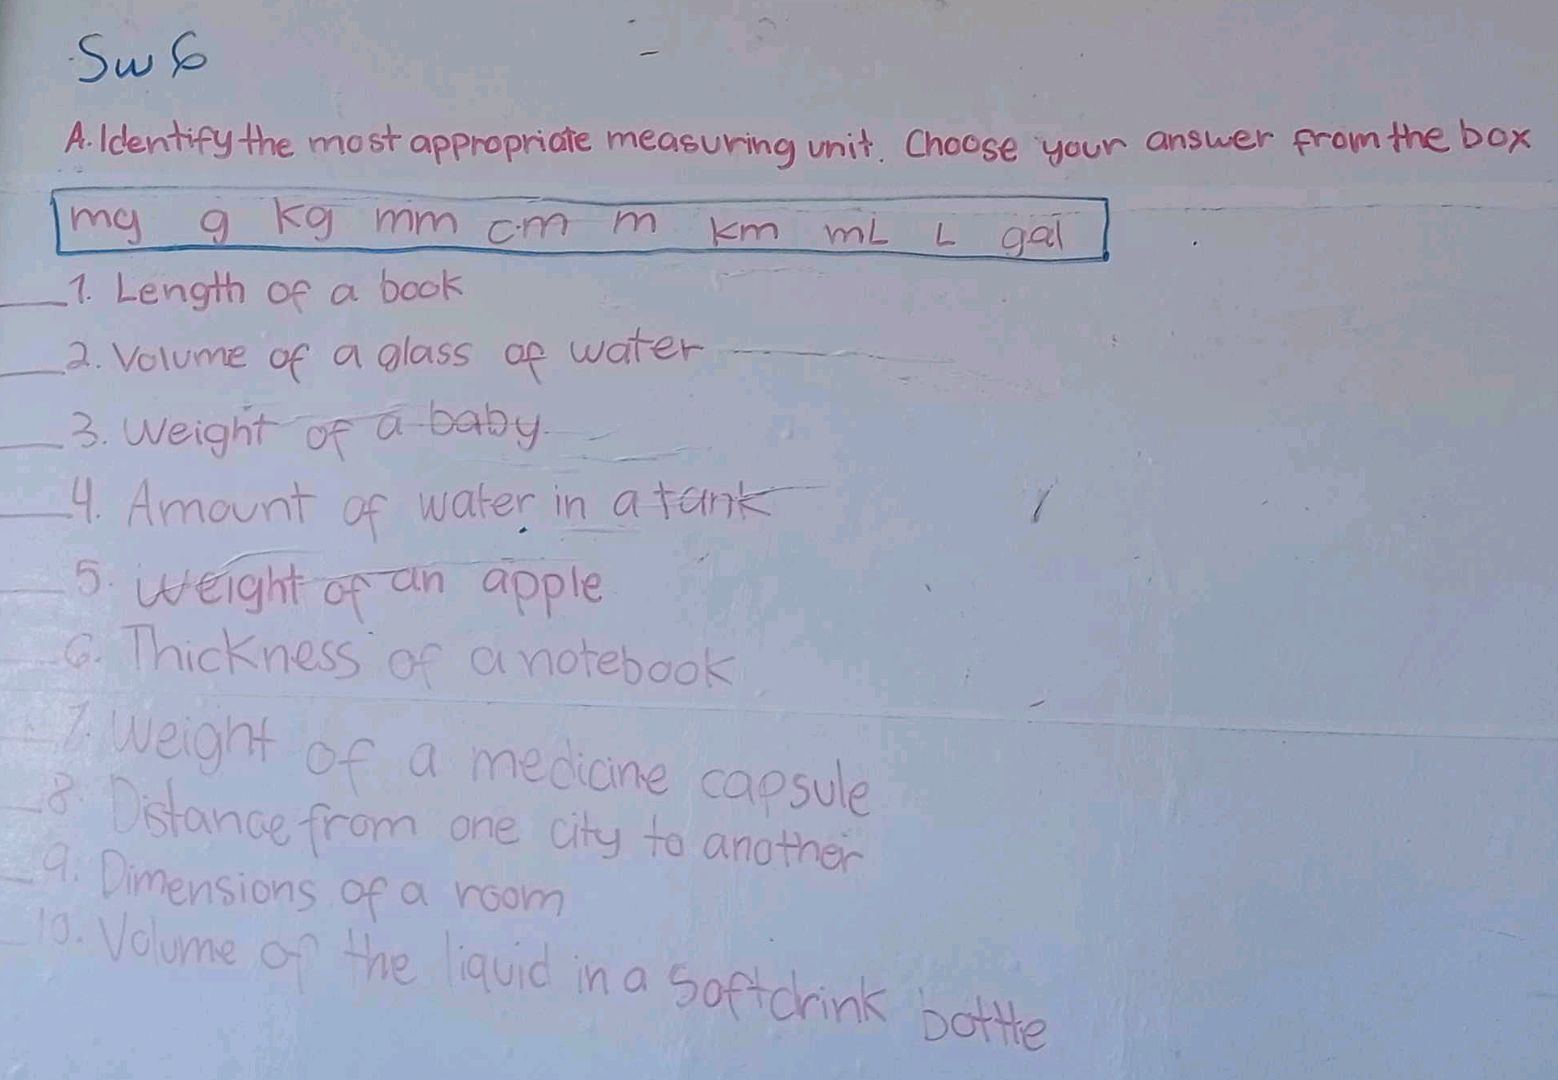 Sw 6
A. Identify the most appropriate measuring unit. Choose your answer from the box
mg g kg mm cm m km mL L gal
1. Length of a book
2. Volume of a glass of water
3. Weight of a baby.
4. Amount of water in a tank
5. Weight of an apple
6. Thickness of a notebook
7. Weight of a medicine capsule
8. Distance from one city to another
9. Dimensions of a room
10. Volume of the liquid in a softdrink bottle